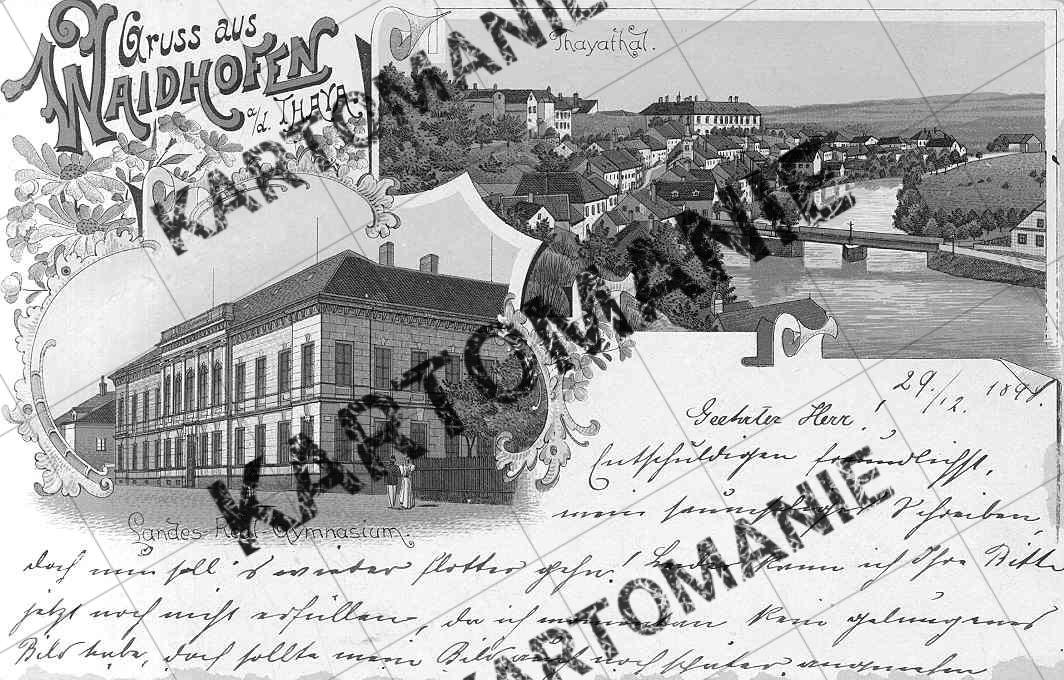 Gruss aus
WAIDHOFEN
a/d. THAYA.
Thayathal.
KARTOMANIE
KARTOMANIE
KARTOMANIE
KARTOMANIE
KARTOMANIE
Landes-Real-Gymnasium.
29./12. 189
Geehrter Herr!
Entschuldigen freundlichst,
mein saumseliges Schreiben,
doch nun soll's wieder flotter gehn! Leider kann ich Ihre Bitte
jetzt noch nicht erfüllen, da ich momentan kein gelungenes
Bild habe, doch sollte mein Bild auch noch später angenehm